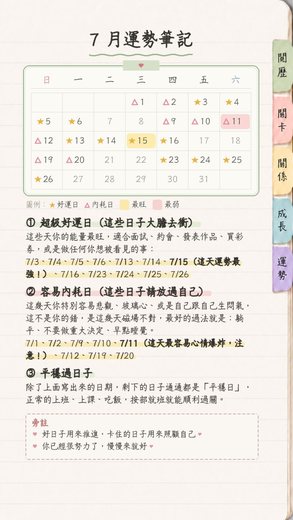 7 月運勢筆記
日 一 二 三 四 五 六
△1 △2 ★3 ★4
★5 ★6 7 8 △9 △10 △11
△12 ★13 ★14 ★15 ★16 17 18
△19 △20 21 22 ★23 ★24 ★25
★26 27 28 29 30 31
圖例：★好運日 △內耗日 最旺 最弱
① 超級好運日（這些日子大膽去衝）
這些天你的能量最旺，適合面試、約會、發表作品、買彩
券，或是做任何你想被看見的事：
7/3、7/4、7/5、7/6、7/13、7/14、7/15（這天運勢最
強！）、7/16、7/23、7/24、7/25、7/26
② 容易內耗日（這些日子請放過自己）
這幾天你特別容易悲觀、玻璃心，或是自己跟自己生悶氣。
這不是你的錯，是這幾天磁場不對，最好的過法就是：躺
平、不要做重大決定、早點睡覺。
7/1、7/2、7/9、7/10、7/11（這天最容易心情爆炸，注
意！）、7/12、7/19、7/20
③ 平穩過日子
除了上面寫出來的日期，剩下的日子通通都是「平穩日」，
正常的上班、上課、吃飯，按部就班就能順利過關。
旁註
♥ 好日子用來推進，卡住的日子用來照顧自己♥
♥ 你已經努力了，慢慢來就好♥
閱歷
關卡
關係
成長
運勢